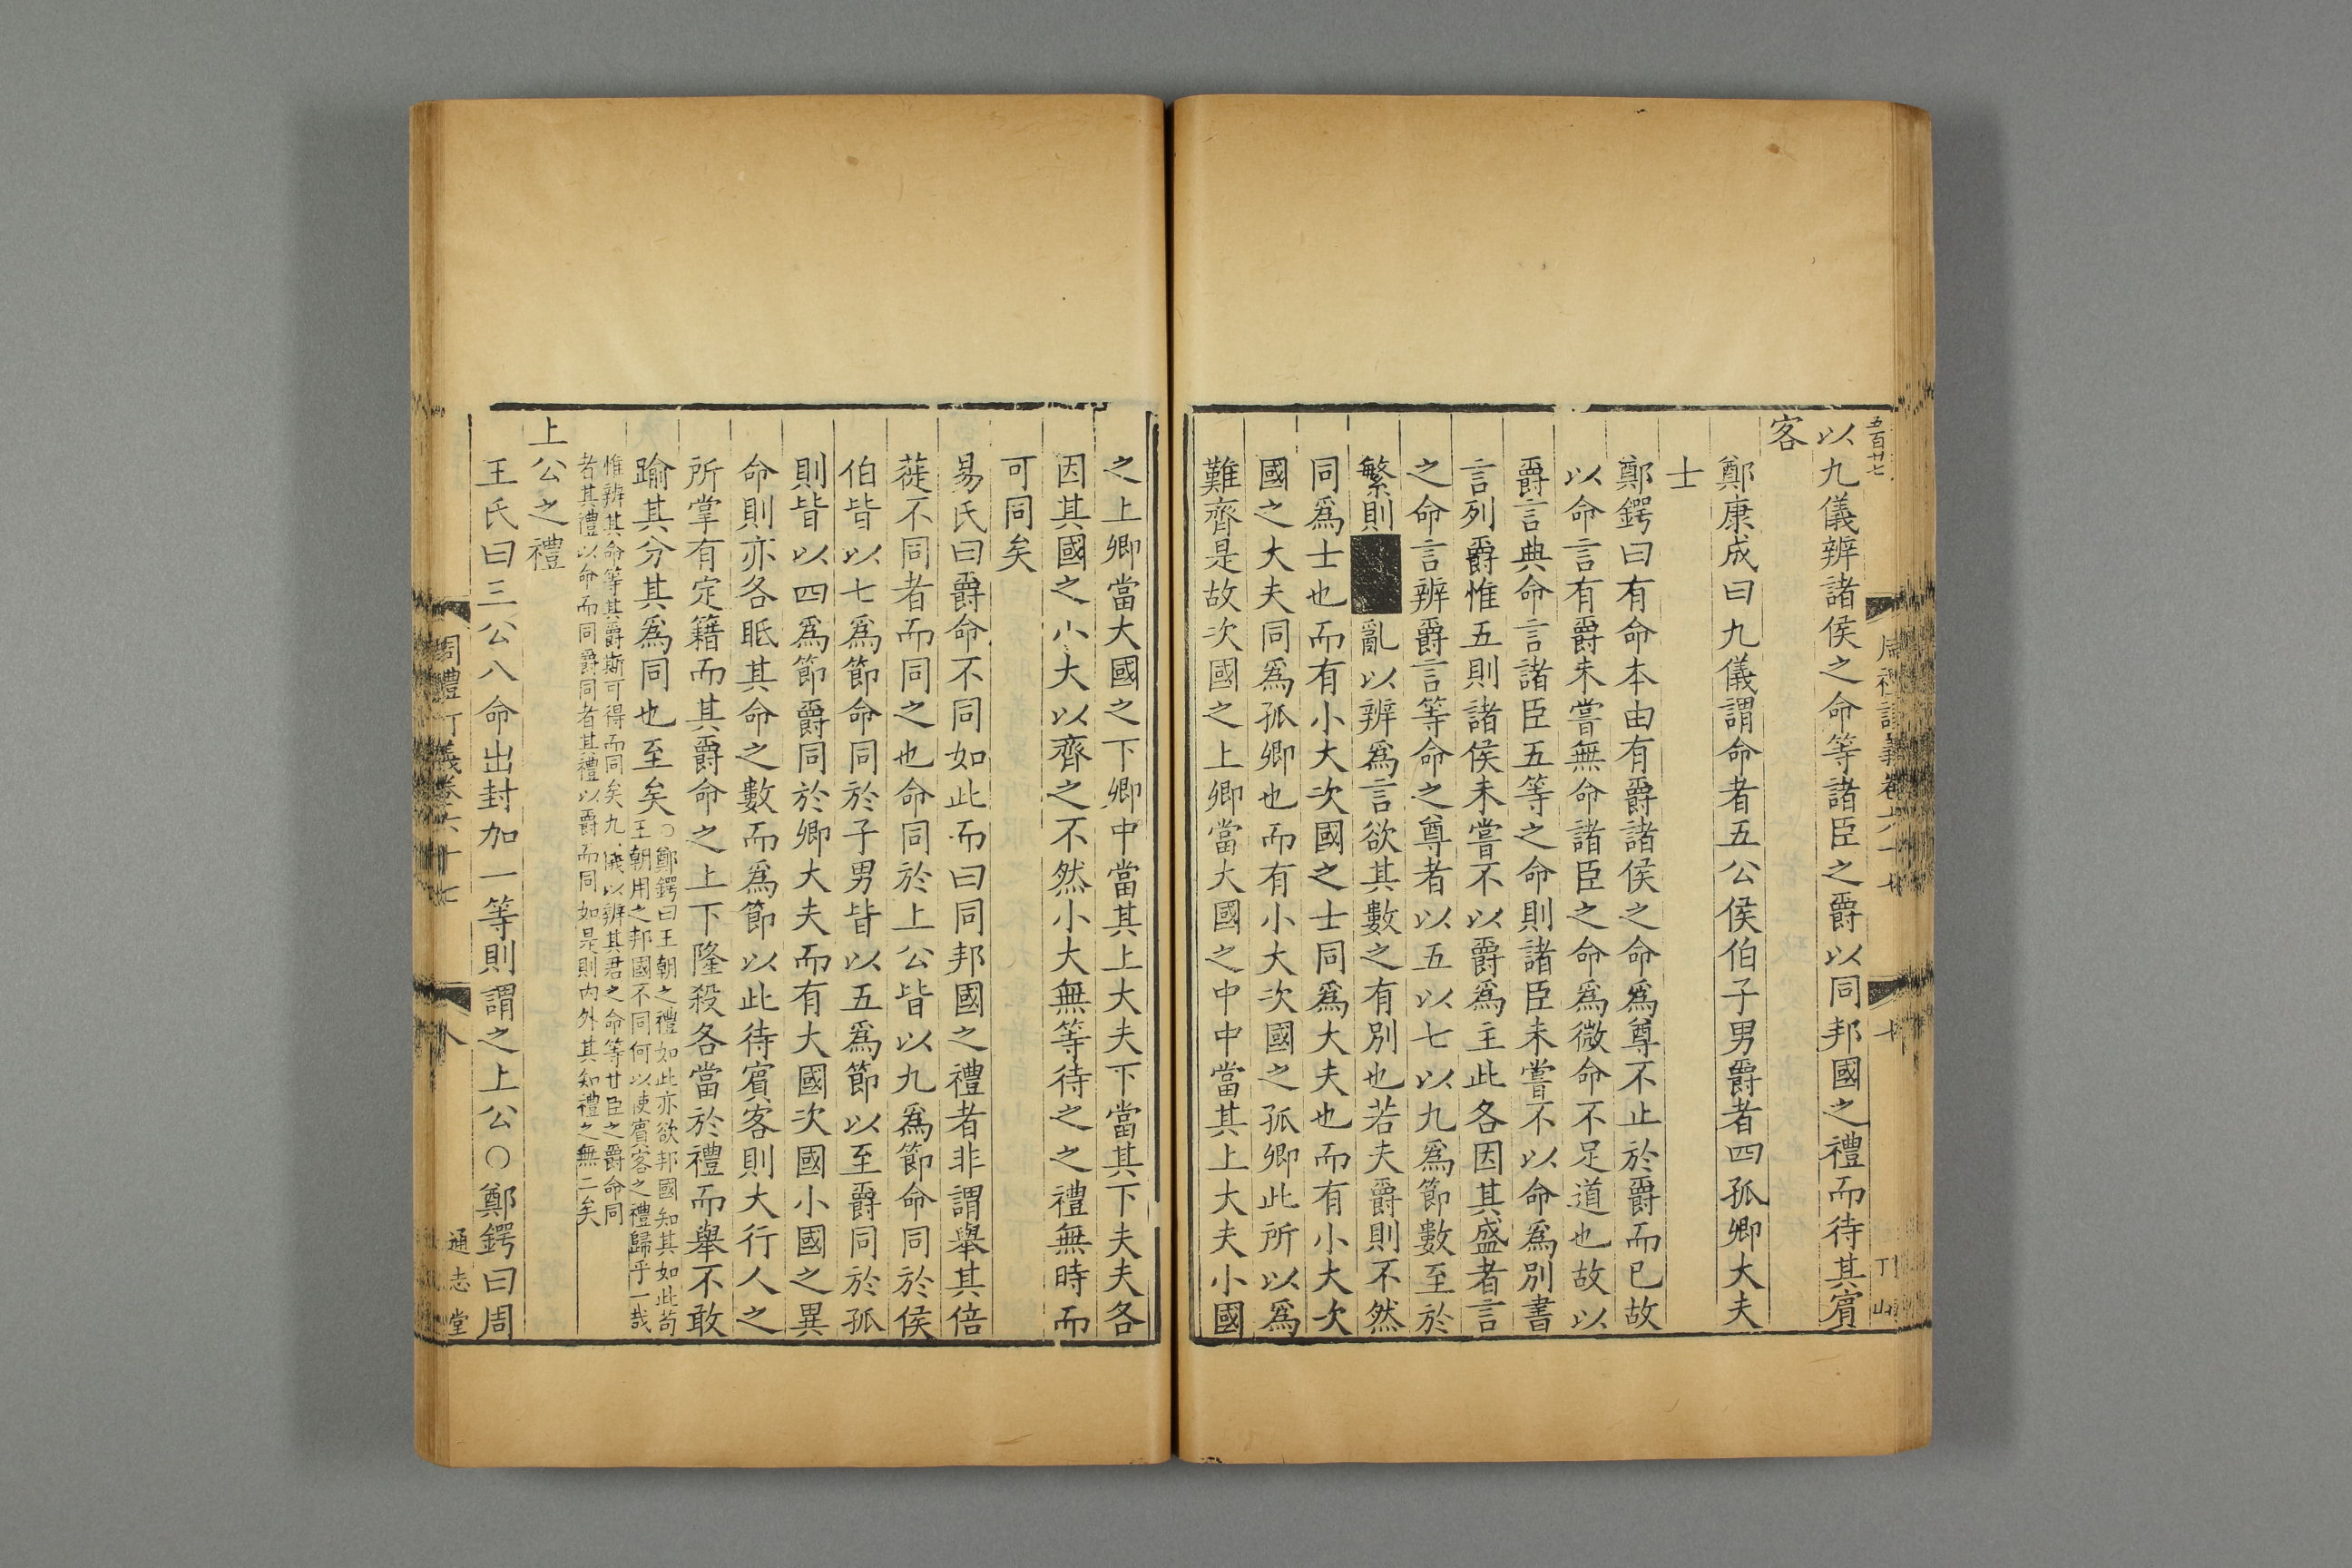 五百廿七
以九儀辨諸侯之命等諸臣之爵以同邦國之禮而待其賓
客
鄭康成曰九儀謂命者五公侯伯子男爵者四孤卿大夫
士
鄭鍔曰有命本由有爵諸侯之命爲尊不止於爵而已故
以命言有爵未嘗無命諸臣之命爲微命不足道也故以
爵言典命言諸臣五等之命則諸臣未嘗不以命爲別書
言列爵惟五則諸侯未嘗不以爵爲主此各因其盛者言
之命言辨爵言等命之尊者以五以七以九爲節數至於
繁則亂以辨爲言欲其數之有別也若夫爵則不然
同爲士也而有小大次國之士同爲大夫也而有小大次
國之大夫同爲孤卿也而有小大次國之孤卿此所以爲
難齊是故次國之上卿當大國之中中當其上大夫小國
之上卿當大國之下卿中當其上大夫下當其下夫夫各
因其國之小大以齊之不然小大無等待之之禮無時而
可同矣
易氏曰爵命不同如此而曰同邦國之禮者非謂舉其倍
蓰不同者而同之也命同於上公皆以九爲節命同於侯
伯皆以七爲節命同於子男皆以五爲節以至爵同於孤
則皆以四爲節爵同於卿大夫而有大國次國小國之異
命則亦各眡其命之數而爲節以此待賓客則大行人之
所掌有定籍而其爵命之上下隆殺各當於禮而舉不敢
踰其分其爲同也至矣○鄭鍔曰王朝之禮如此亦欲邦國知其如此苟
王朝用之邦國不同何以使賓客之禮歸乎一哉
惟辨其命等其爵斯可得而同矣九儀以辨其君之命等廿臣之爵命同
者其禮以命而同爵同者其禮以爵而同如是則內外其知禮之無二矣
上公之禮
王氏曰三公八命出封加一等則謂之上公○鄭鍔曰周
周禮訂義卷六十七
八
通志堂